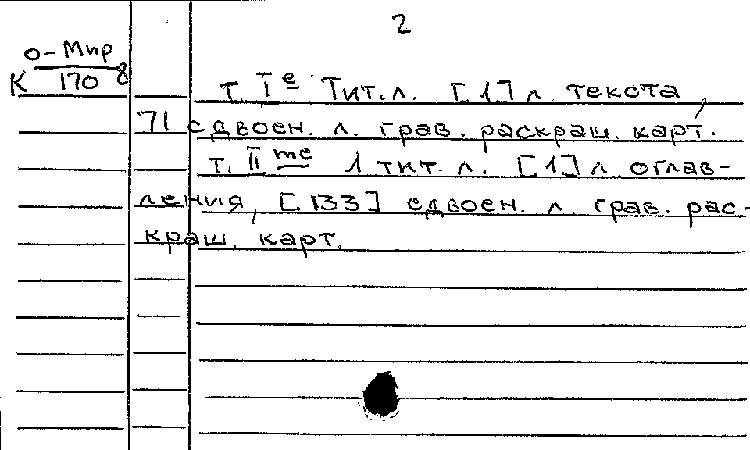 2
о-Мир
К 170
8
т. Iе Тит.л. [1] л. текста,
71 сдвоен. л. грав. раскраш. карт.
т. IIme 1 тит. л. [1] л. оглав-
ления, [133] сдвоен. л. грав. рас-
краш. карт.